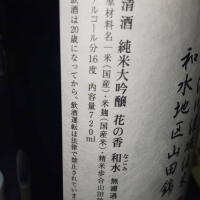 和水地区山田錦
清酒 純米大吟醸 花の香 和水 無濾過
なごみ
原材料名 米(国産)・米麹(国産米)・精米歩合
アルコール分16度 内容量720ml
飲酒は20歳になってから。飲酒運転は法律で禁止されています